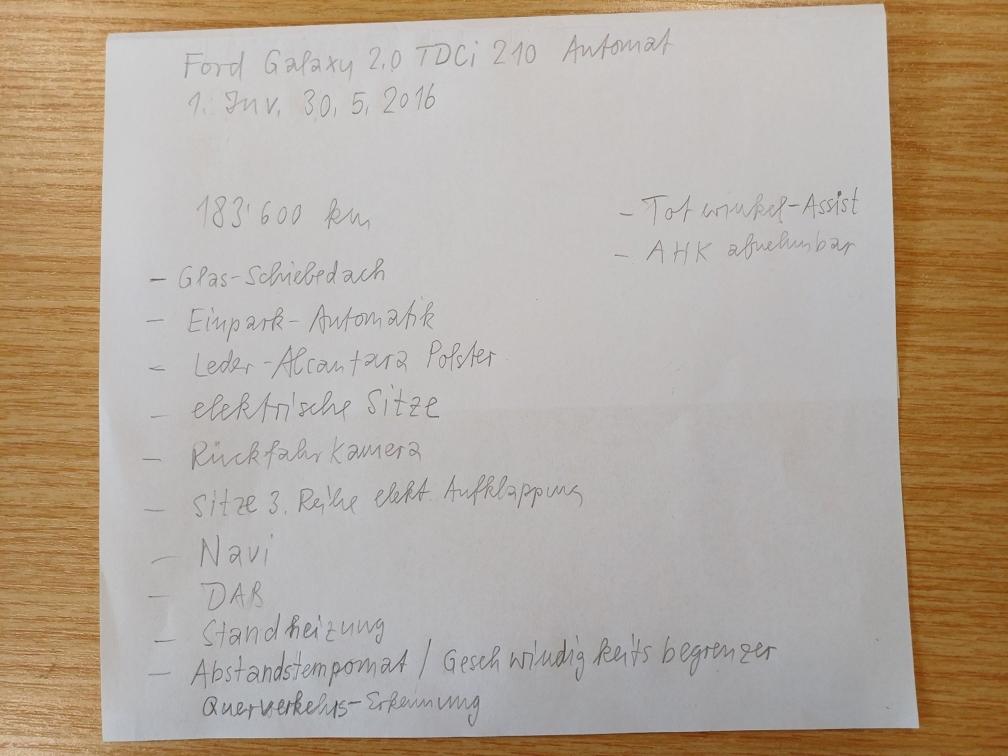 Ford Galaxy 2.0 TDCi 210 Automat
1. Inv. 30.5.2016
183'600 km
- Glas-Schiebedach
- Einpark-Automatik
- Leder-Alcantara Polster
- elektrische Sitze
- Rückfahrkamera
- Sitze 3. Reihe elekt. Aufklappung
- Navi
- DAB
- Standheizung
- Abstandstempomat / Geschwindigkeitsbegrenzer
Querverkehrs-Erkennung
- Totwinkel-Assist
- AHK abnehmbar